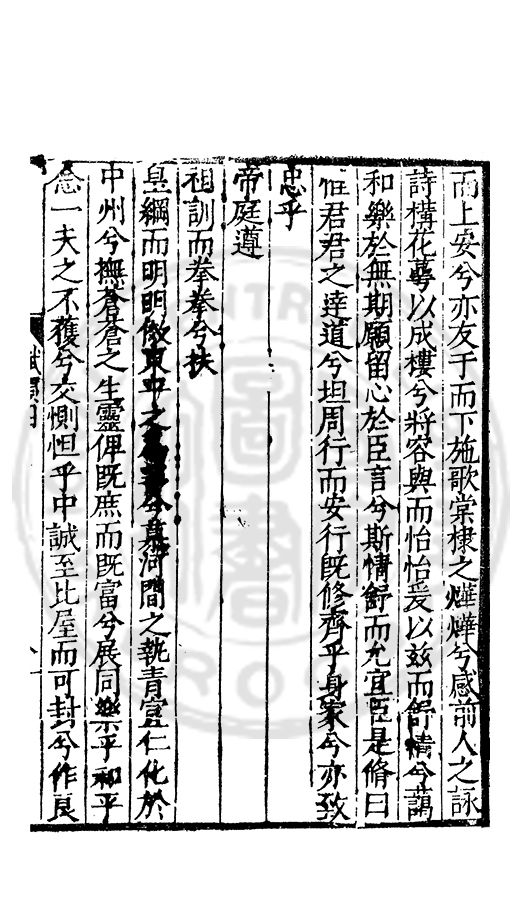 而上安兮亦友于而下施歌棠棣之燁燁兮感前人之詠
詩構花萼以成樓兮將容與而怡怡爰以兹而舒情兮藹
和樂於無期願留心於臣言兮斯情舒而允宜臣是脩曰
惟君君之達道兮坦周行而安行既修齊乎身家兮亦致
忠乎
帝庭遵
祖訓而拳拳兮扶
皇綱而明明倣東中之爲善兮慕河間之執書宣仁化於
中州兮撫蒼蒼之生靈俾既庶而既富兮展同樂乎和平
念一夫之不獲兮交惻怛乎中誠至比屋而可封兮作良